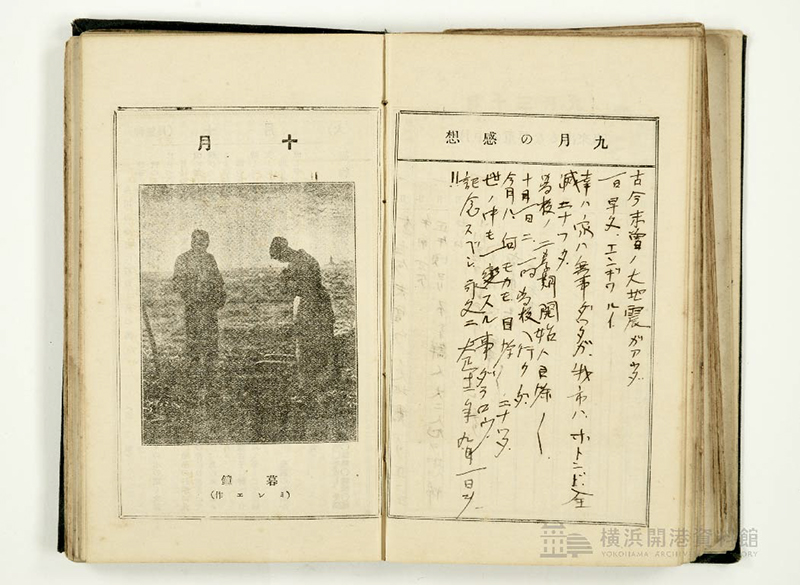 九月の感想
古今未曾有ノ大地震ガアッタ
一日早々、エンギワルイ
幸ハノ家ハ無事ダッタガ、我市ハ、ホトンド全
滅ニナッタ
学校ノ二学期開始ハ目除ク
十月一日ニハ学校ヘ行クノダ
今月ハ何モカモ目除ク ニナッタ
世ノ中モ一変スル事ダラウ
記念スベシ、永久ニ大正十二年九月一日ヲ
!!
十月
晩鐘
(ミレエ作)
横浜開港資料館
YOKOHAMA ARCHIVES OF HISTORY